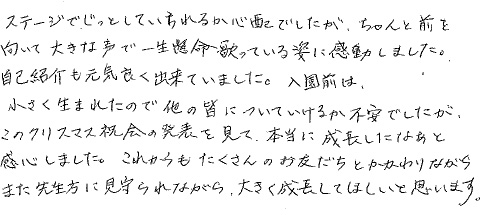 ステージでじっとしていられるか心配でしたが、ちゃんと前を
向いて大きな声で一生懸命歌っている姿に感動しました。
自己紹介も元気良く出来ていました。入園前は、
小さく生まれたので他の皆についていけるか不安でしたが、
このクリスマス祝会の発表を見て、本当に成長したなあと
感心しました。これからもたくさんのお友だちとかかわりながら
また先生方に見守られながら、大きく成長してほしいと思います。